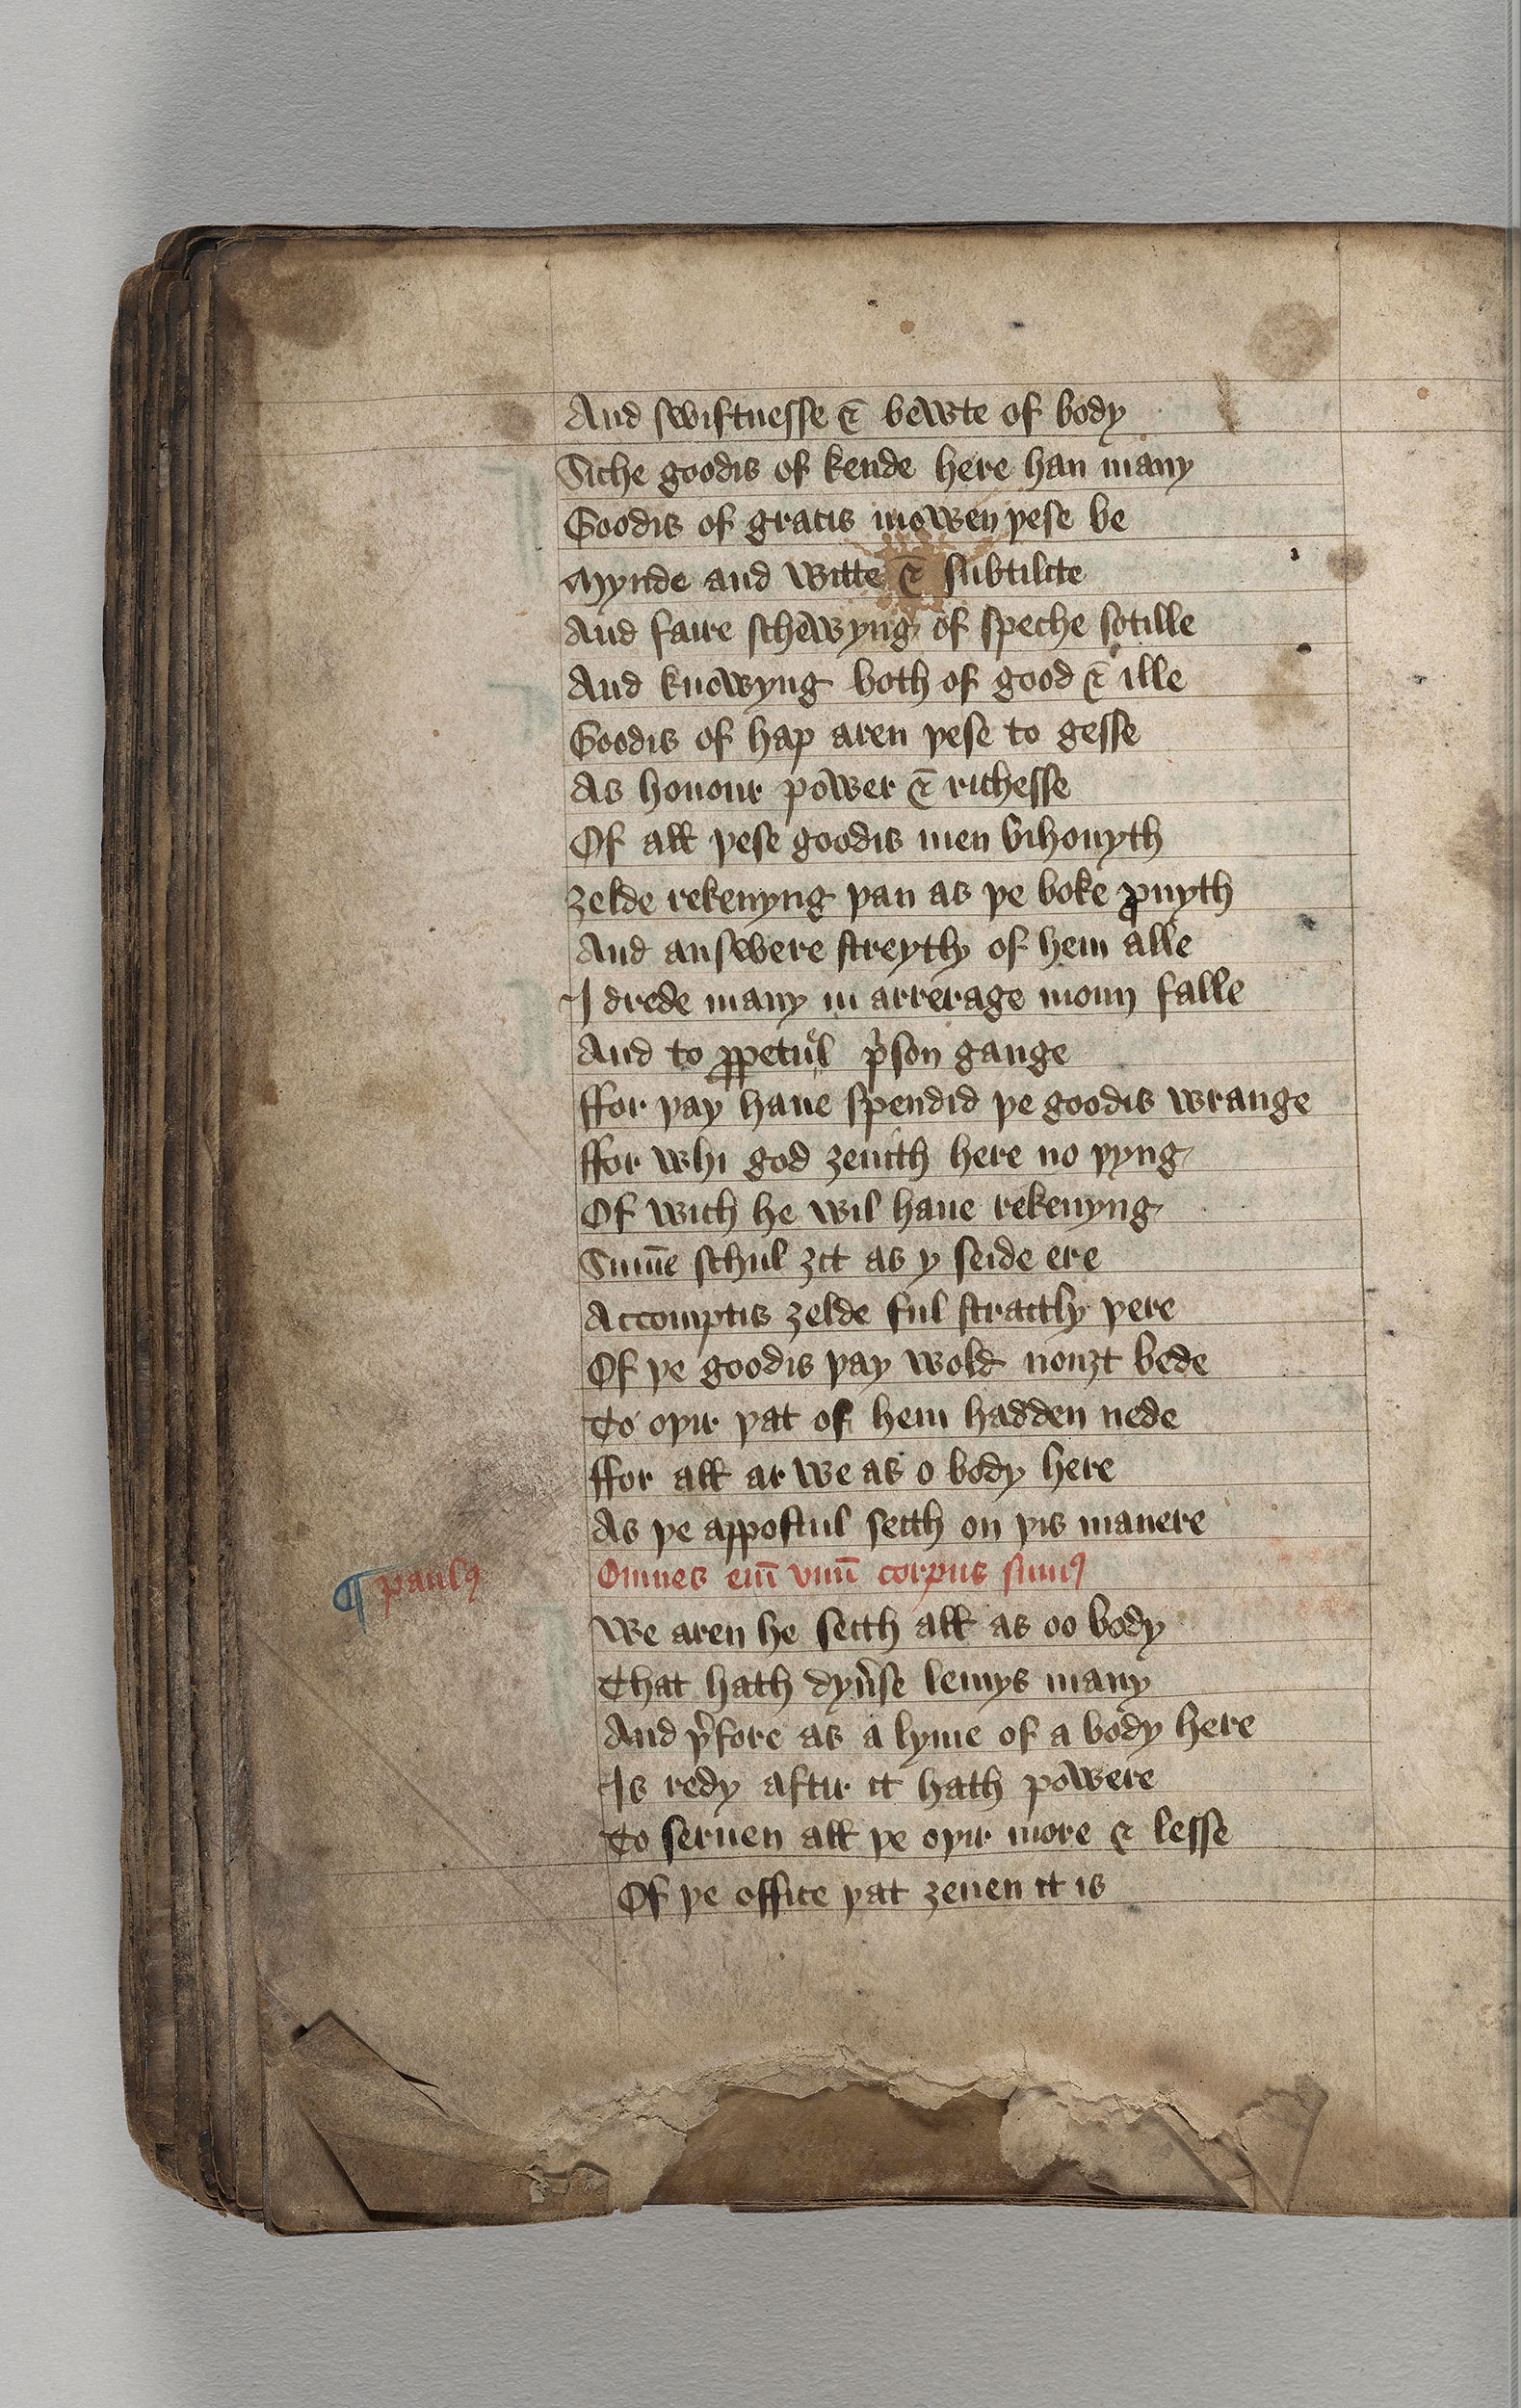 And swiftnesse & bewte of body
Siche goodis of kende here han many
Goodis of gracis mowen þese be
Mynde and witte & subtilite
And faire schewyng of speche sotille
And knowyng both of good & ille
Goodis of hap aren þese to gesse
As honour power & richesse
Of all þese goodis men bihouyth
Ȝelde rekenyng þan as þe boke ꝓuyth
And answere streytly of hem alle
I drede many in arrerage moun falle
And to ꝑpetuel p'son gange
ffor þay haue spendid þe goodis wrange
ffor whi god ȝeuith here no þyng
Of wich he wil haue rekenyng
Sum̄e schul ȝit as y seide ere
Accomptis ȝelde ful straitly þere
Of þe goodis þay wold nouȝt bede
To oþir þat of hem hadden nede
ffor all ar we as o body here
As þe appostul seith on þis manere
¶ paulꝰ
Omnes enī vnū corpus sumꝰ
We aren he seith all as oo body
That hath dyu'se lemys many
And þ'fore as a lyme of a body here
Is redy aftir it hath powere
To seruen all þe oþir more & lesse
Of þe office þat ȝeuen it is